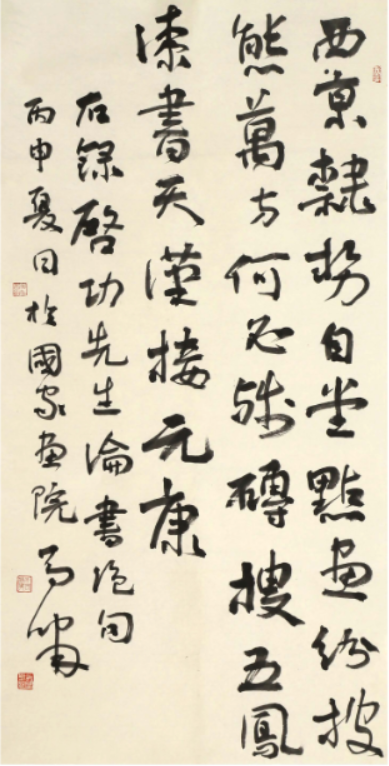 西京隸勢自堂點畫紛披
態萬方何必殘磚搜五鳳
漆書天漢接元康
右錄啓功先生論書絕句
丙申夏日於國家畫院馬嘯